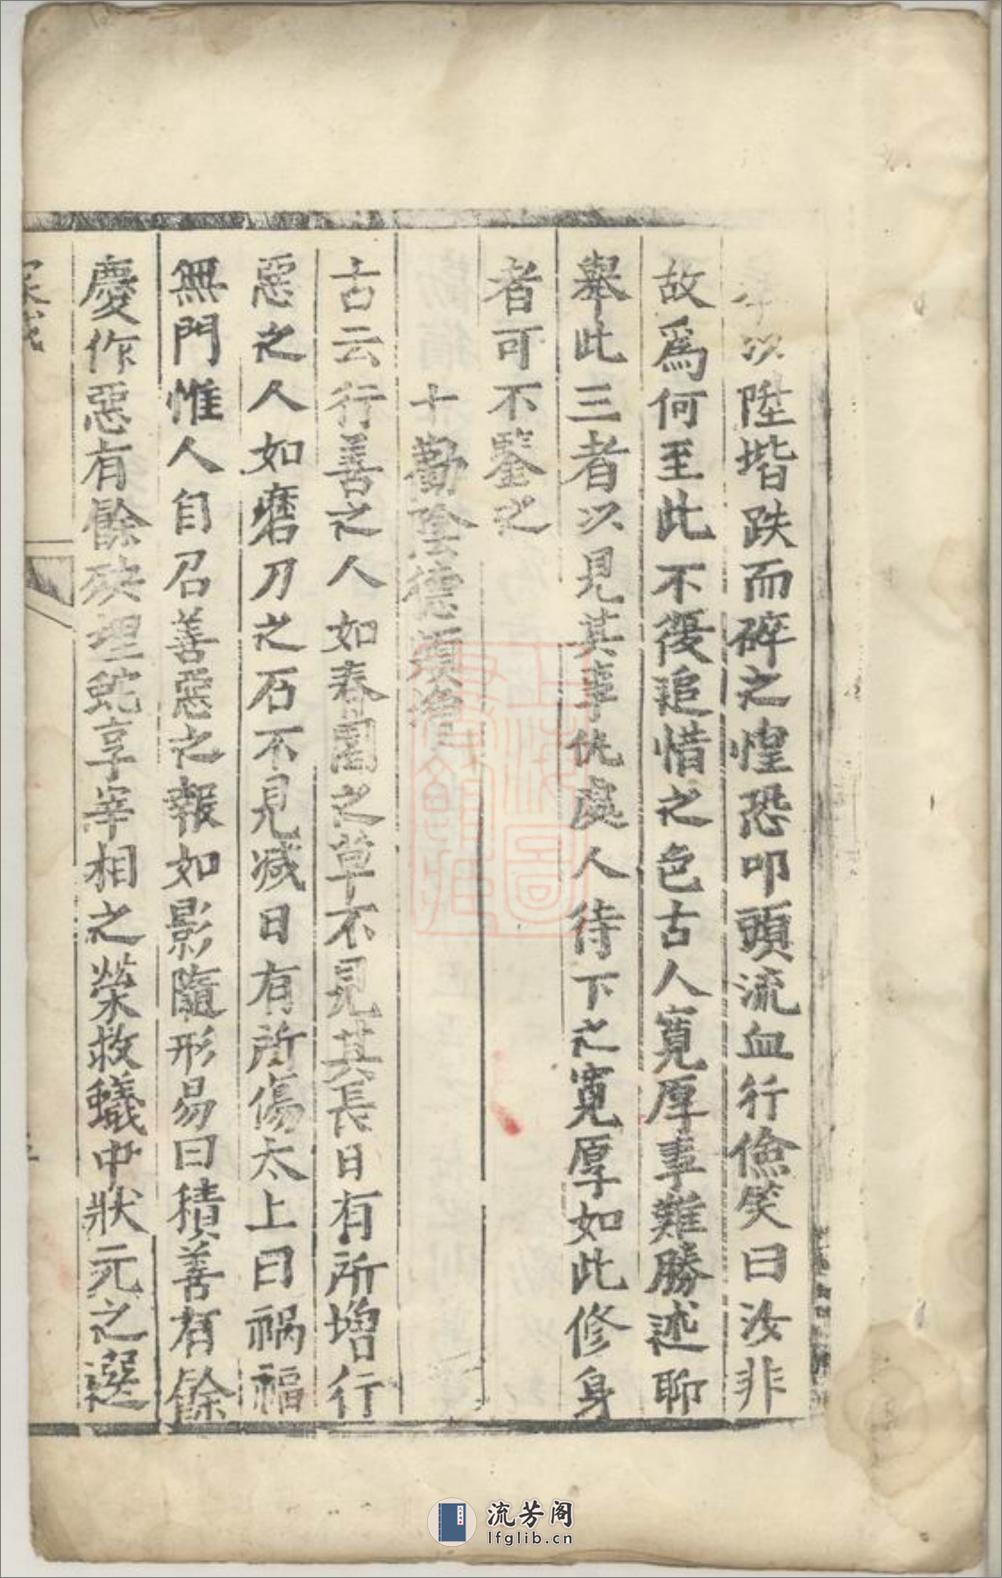 以陞堦跌而碎之惶恐叩頭流血行儉笑曰汝非
故爲何至此不復追惜之色古人寬厚事難勝述聊
舉此三者以見其事仇處人待下之寬厚如此修身
者可不鑒之
十勸陰德須增
古云行善之人如春園之草不見其長日有所增行
惡之人如磨刀之石不見减日有所傷太上曰禍福
無門惟人自召善惡之報如影隨形易曰積善有餘
慶作惡有餘殃埋蛇享宰相之榮救蟻中狀元之選
上海圖書館藏
流芳阁
lfglib.cn